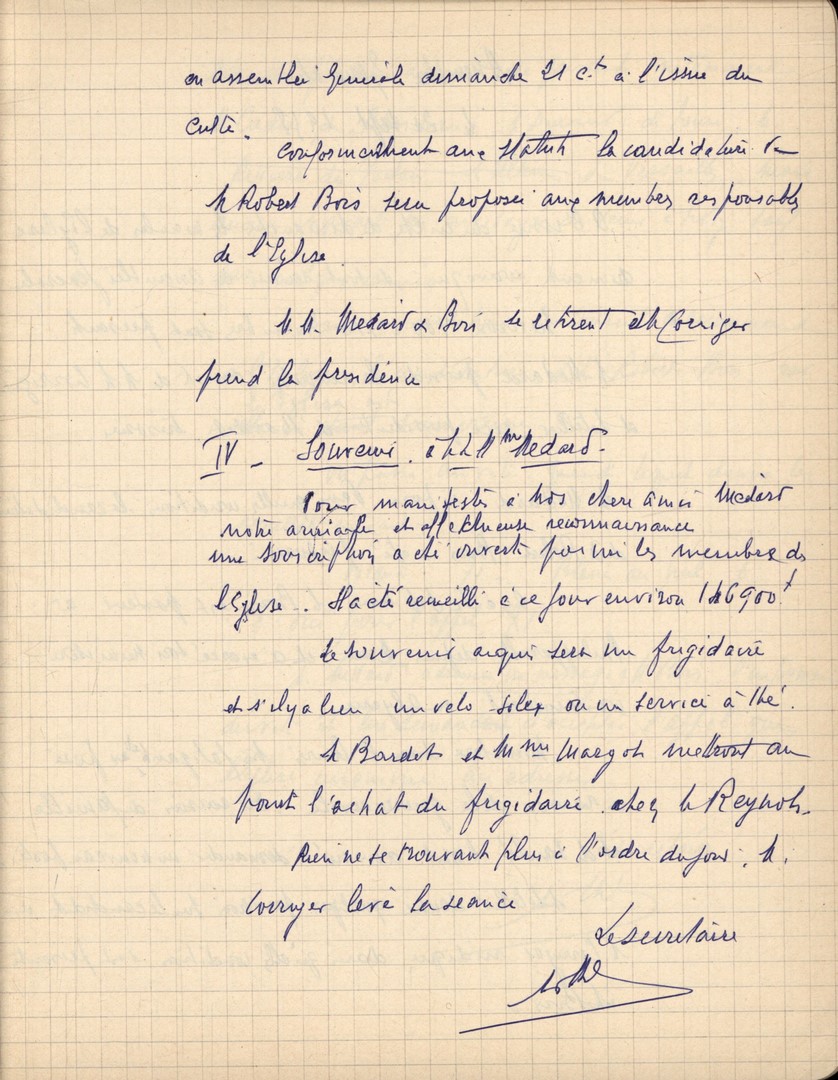 en assemblée Générale dimanche 21 ct à l'issue du
culte.
Conformément aux statuts la candidature de
M Robert Bois sera proposée aux membres responsables
de l'Eglise.
M.M. Medard & Bois se retirent et M Corriger
prend la présidence
IV - Souvenir à M & Mme Medard.
Pour manifester à nos chers amis Médard
notre amicale et affectueuse reconnaissance
une souscription a été ouverte parmi les membres de
l'Eglise. Il a été recueilli à ce jour environ 146900f
Le souvenir acquis sera un frigidaire
et s'il y a lieu un velo solex ou un service à thé.
M Bardet et Mme Margot mettront au
point l'achat du frigidaire chez M Reynols.
Rien ne se trouvant plus à l'ordre du jour. M.
Corriger lève la séance
Le secrétaire